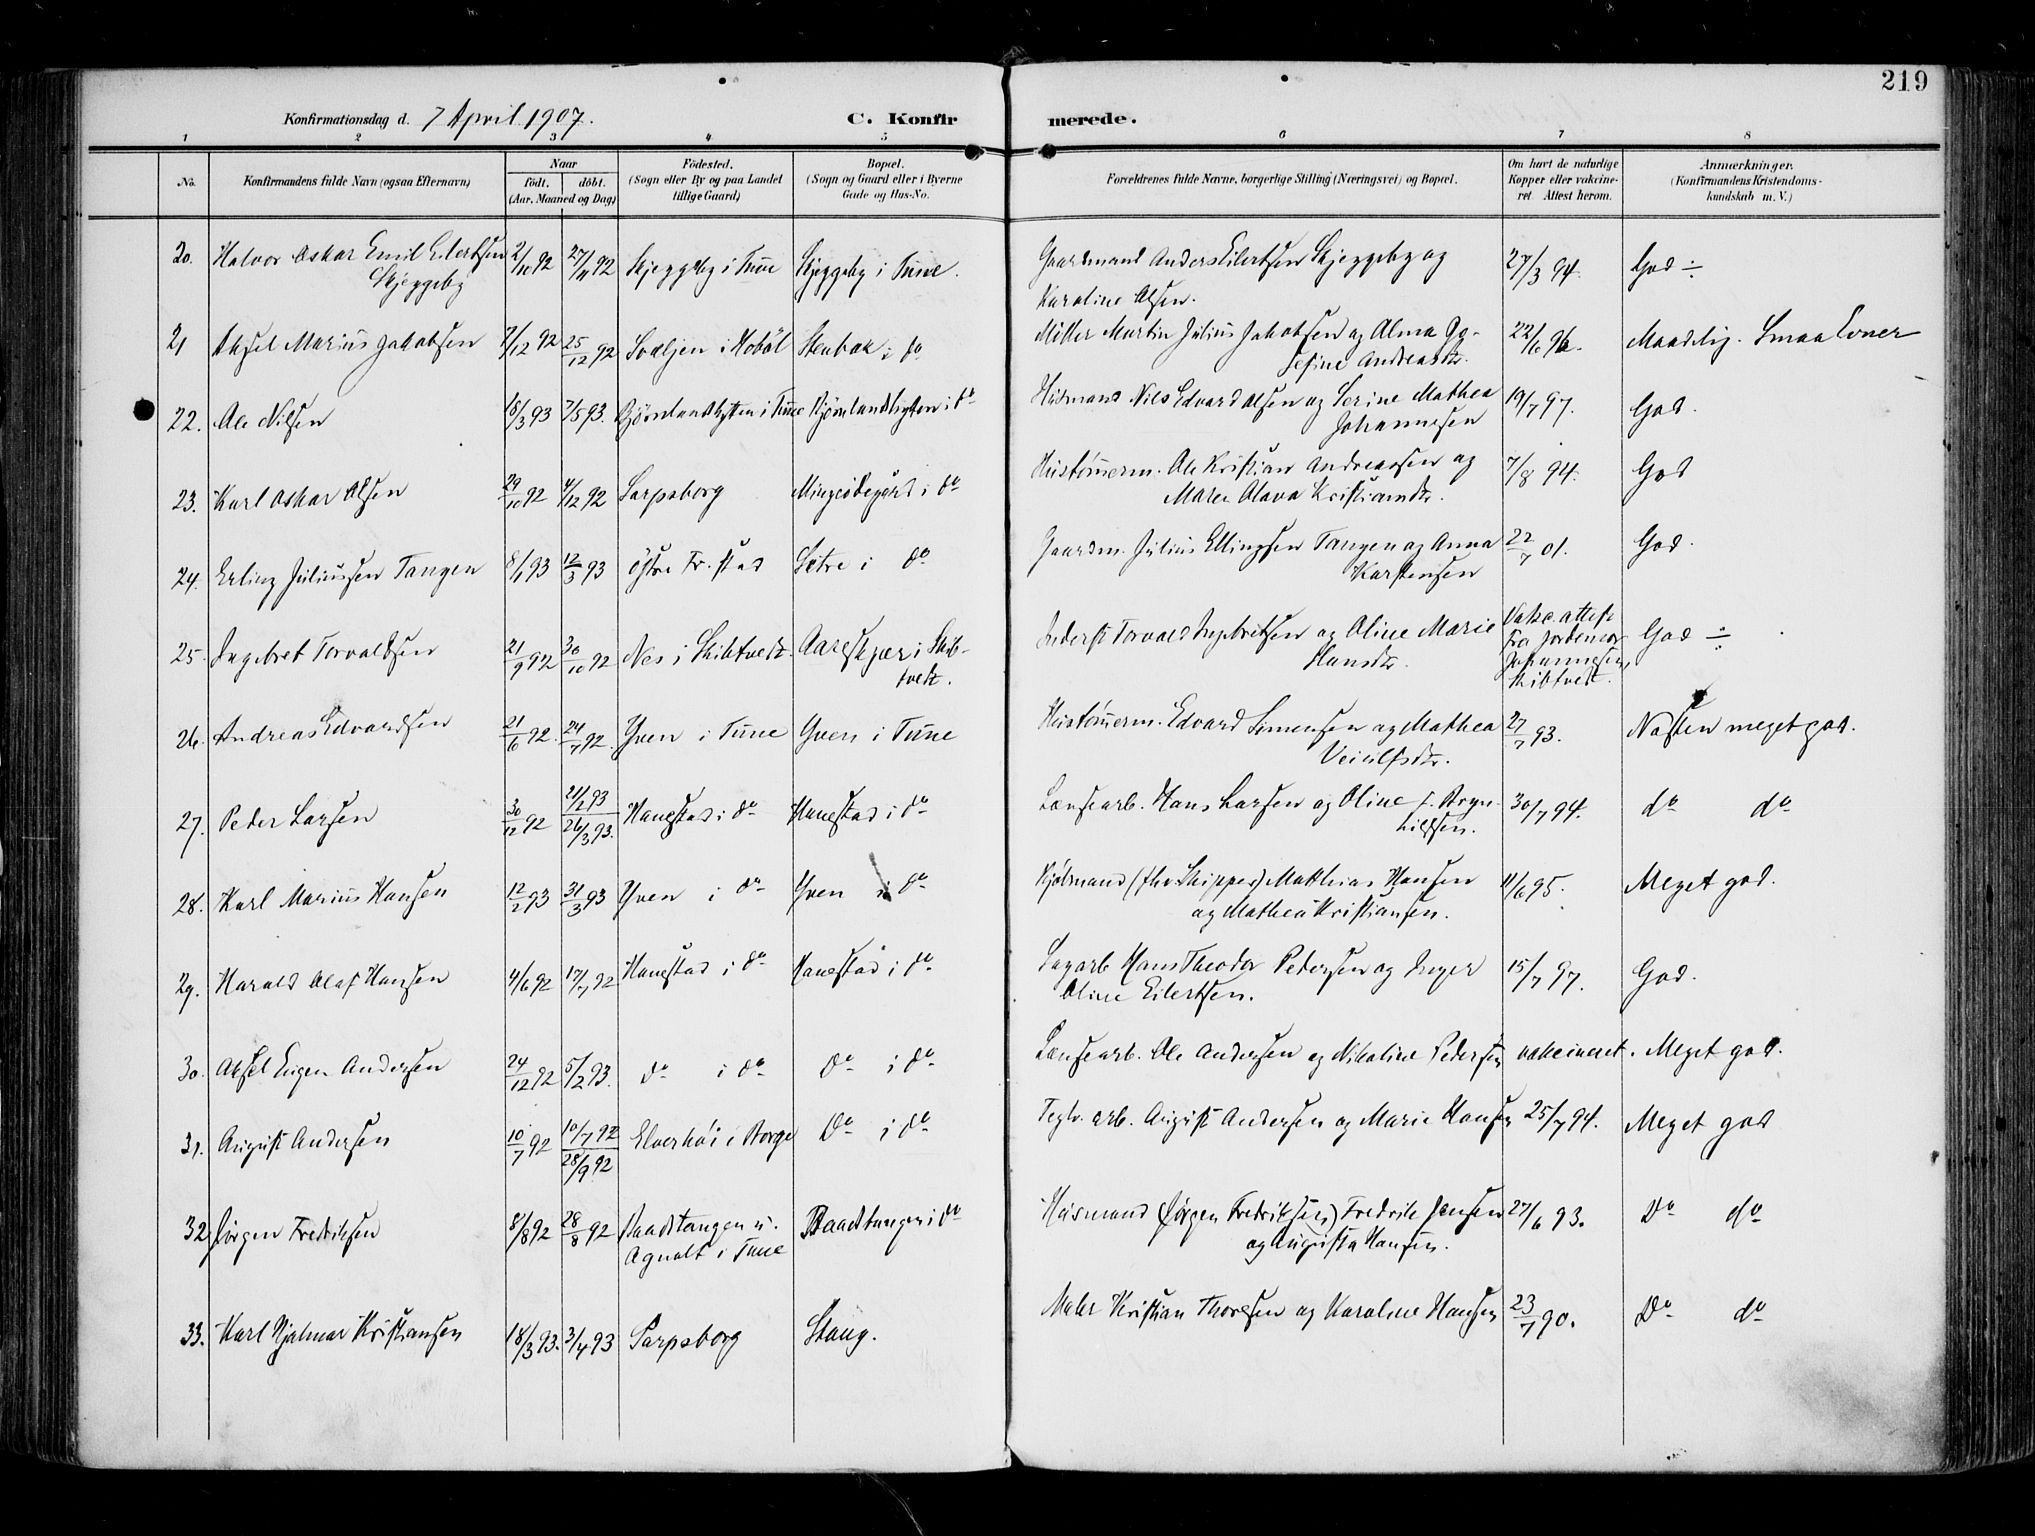 219
Konfirmationsdag d. 7 April 1907.
C. Konfirmerede.
1 2 3 4 5 6 7 8
No. Konfirmandens fulde Navn (ogsaa Efternavn) Naar født, døbt. (Aar, Maaned og Dag) Fødested. (Sogn eller By og paa Landet tillige Gaard) Bopæl. (Sogn og Gaard eller i Byerne Gade og Hus-No. Forældrenes fulde Navne, borgerlige Stilling (Næringsvei) og Bopæl. Om havt de naturlige Kopper eller vakcineret Attest herom. Anmærkninger. (Konfirmandens Kristendomskundskab m.V.)
20. Halvor Oskar Emil Eilertsen 2/10 92 27/11 92 Skjeggeby i Tune Skjeggeby i Tune. Gaardmand Anders Eilertsen Skjeggeby og 27/3 94. God ÷
Skjeggeby Karoline Olsen.
21 Aksel Marius Jakobsen 7/12 92 25/12 92 i Hobøl Stenbæk i do Møller Martin Julius Jakobsen og Alma Jo- 22/6 96. Maadelig. Smaa Evner
sefine Andreasdtr.
22. Ole Nilsen 18/3 93 7/5 93. Bjørnlandshytten i Tune Bjørnlandshytten i do Husmand Nils Edvard Olsen og Serine Mathea 19/7 97. God.
Johannesen
23. Karl Oskar Olsen 29/10 92 4/12 92 Sarpsborg Mingeødegård i do Hustømmerm. Ole Kristian Andreassen og 7/8 94. God
Maren Olava Kristiansdtr.
24. Erling Juliussen Tangen 8/1 93 12/3 93 Østre Fr.stad Setre i do Gaardm. Julius Ellingsen Tangen og Anna 22/7 01. God.
Karstensen
25. Ingebret Torvaldsen 21/9 92 30/10 92 Nes i Skibtvedt. Aareskjær i Skib- Inderst Torvald Ingebretsen og Oline Marie Vakc. attest God ÷
tvedt. Hansdtr. fra Jordemor
Johannesen,
Skibtvedt.
26. Andreas Edvardsen 21/6 92. 24/7 92. Yven i Tune Yven i Tune Hustømmerm. Edvard Simensen og Mathea 27/7 93. Næsten meget god.
Veiulfsdtr.
27. Peder Larsen 30/12 92 21/2 93 Hanestad i do Hanestad i do Lænsearb. Hans Larsen og Oline f. Bryn- 30/7 94. do do
26/3 93. hildsen.
28. Karl Marius Hansen 12/2 93 31/3 93 Yven i do Yven i do Kjøbmand (fhv Skipper) Matthias Hansen 11/6 95. Meget god.
og Mathea Kristiansen.
29. Harald Olaf Hansen 4/6 92 17/7 92 Hanestad i do Hanestad i do Sagarb Hans Theodor Pedersen og Inger 15/7 97. God.
Oline Eilertsen.
30. Aksel Eugen Andersen 24/12 92 5/2 93. do i do do i do Lænsearb. Ole Andersen og Nikoline Pedersen vakcineret. Meget god.
31. August Andersen 10/7 92 10/7 92 Elverhøi i Borge Do i do Teglv. arb. August Andersen og Marie Hansen 25/7 94. Meget god
28/9 92
32 Jørgen Fredriksen 8/8 92 28/8 92 Raadtangen u. Raadtangen i do Husmand (Jørgen Fredriksen) Fredrik Jensen 27/6 93. Do do
Agnalt i Tune og Augusta Hansen.
33. Karl Hjalmar Kristiansen 18/3 93. 3/4 93 Sarpsborg Stang. Maler Kristian Thoresen og Karoline Hansen 23/7 90. Do do